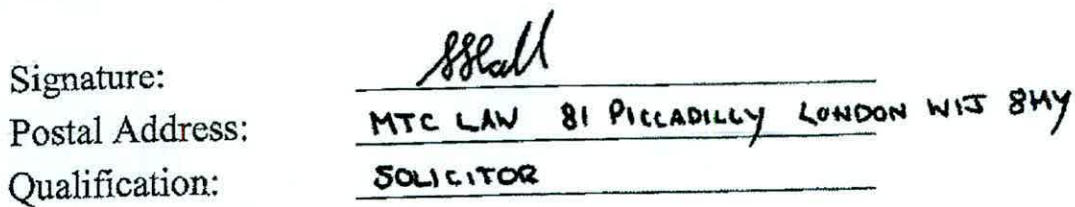 Signature: SHall
Postal Address: MTC LAW 81 PICCADILLY LONDON W1J 8HY
Qualification: SOLICITOR